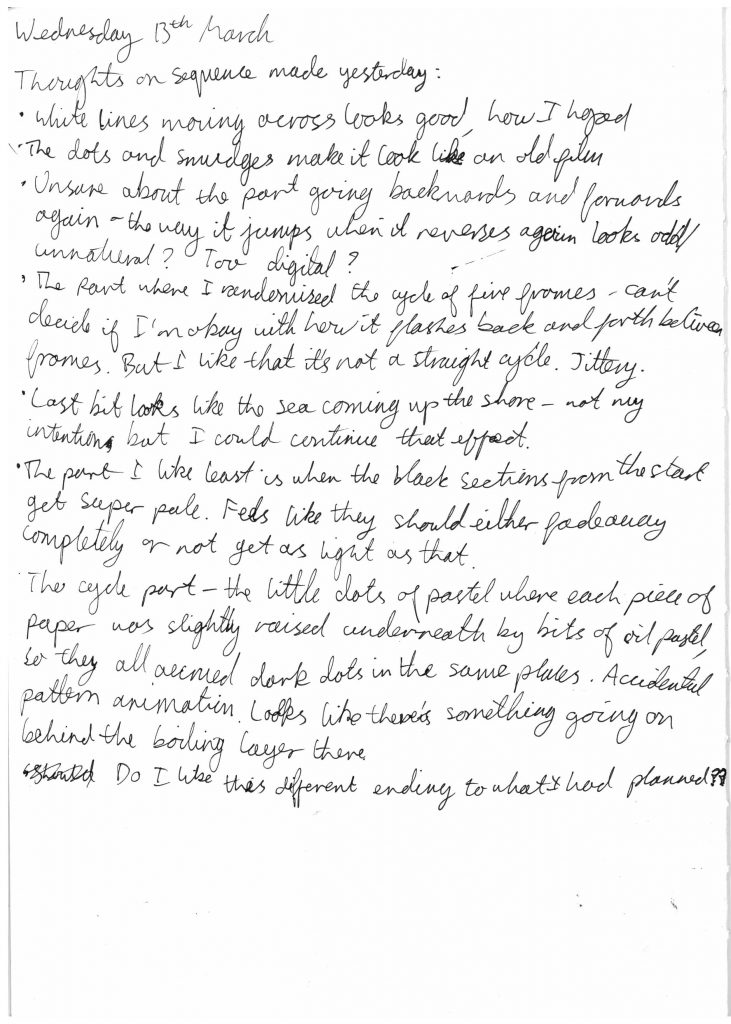 Wednesday 13th March
Thoughts on sequence made yesterday:
• White lines moving across looks good, how I hoped
• The dots and smudges make it look like an old film
• Unsure about the part going backwards and forwards
again – the way it jumps when it reverses again looks odd/
unnatural? Too digital?
• The part where I randomised the cycle of five frames – can't
decide if I'm okay with how it flashes back and forth between
frames. But I like that it's not a straight cycle. Jittery.
• Last bit looks like the sea coming up the shore – not my
intention, but I could continue that effect.
• The part I like least is when the black sections from the start
get super pale. Feels like they should either fade away
completely or not get as light as that.
The cycle part – the little dots of pastel where each piece of
paper was slightly raised underneath by bits of oil pastel,
so they all accrued dark dots in the same places. Accidental
pattern animation. Looks like there's something going on
behind the boiling layer there
Do I like this different ending to what I had planned??